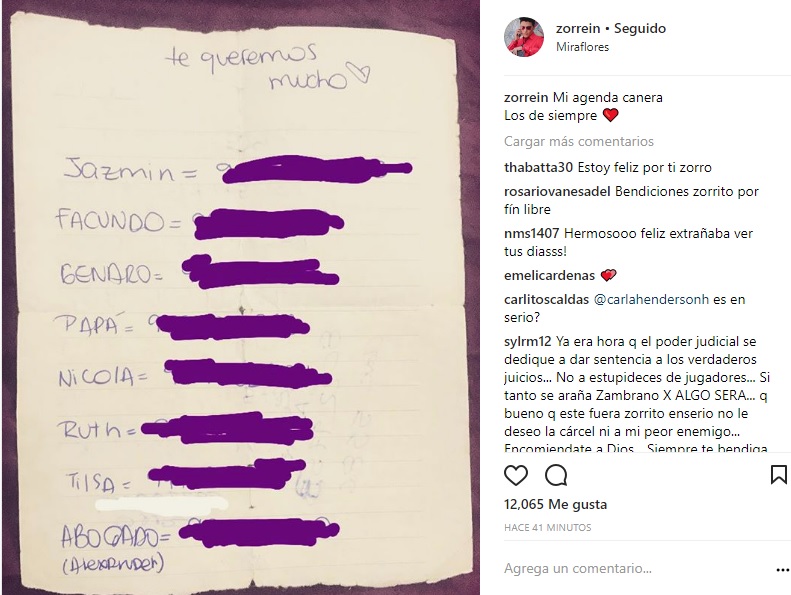 te queremos
mucho
Jazmin =
FACUNDO =
GENARO =
PAPÁ =
NICOLA =
Ruth =
TILSA =
ABOGADO =
(Alexander)
zorrein • Seguido
Miraflores
zorrein Mi agenda canera
Los de siempre ❤️
Cargar más comentarios
thabatta30 Estoy feliz por ti zorro
rosariovanesadel Bendiciones zorrito por
fín libre
nms1407 Hermosooo feliz extrañaba ver
tus diasss!
emelicardenas 💕
carlitoscaldas @carlahendersonh es en
serio?
sylrm12 Ya era hora q el poder judicial se
dedique a dar sentencia a los verdaderos
juicios... No a estupideces de jugadores... Si
tanto se araña Zambrano X ALGO SERA... q
bueno q este fuera zorrito enserio no le
deseo la cárcel ni a mi peor enemigo...
Encomiendate a Dios.. Siempre te bendiga
12,065 Me gusta
HACE 41 MINUTOS
Agrega un comentario...